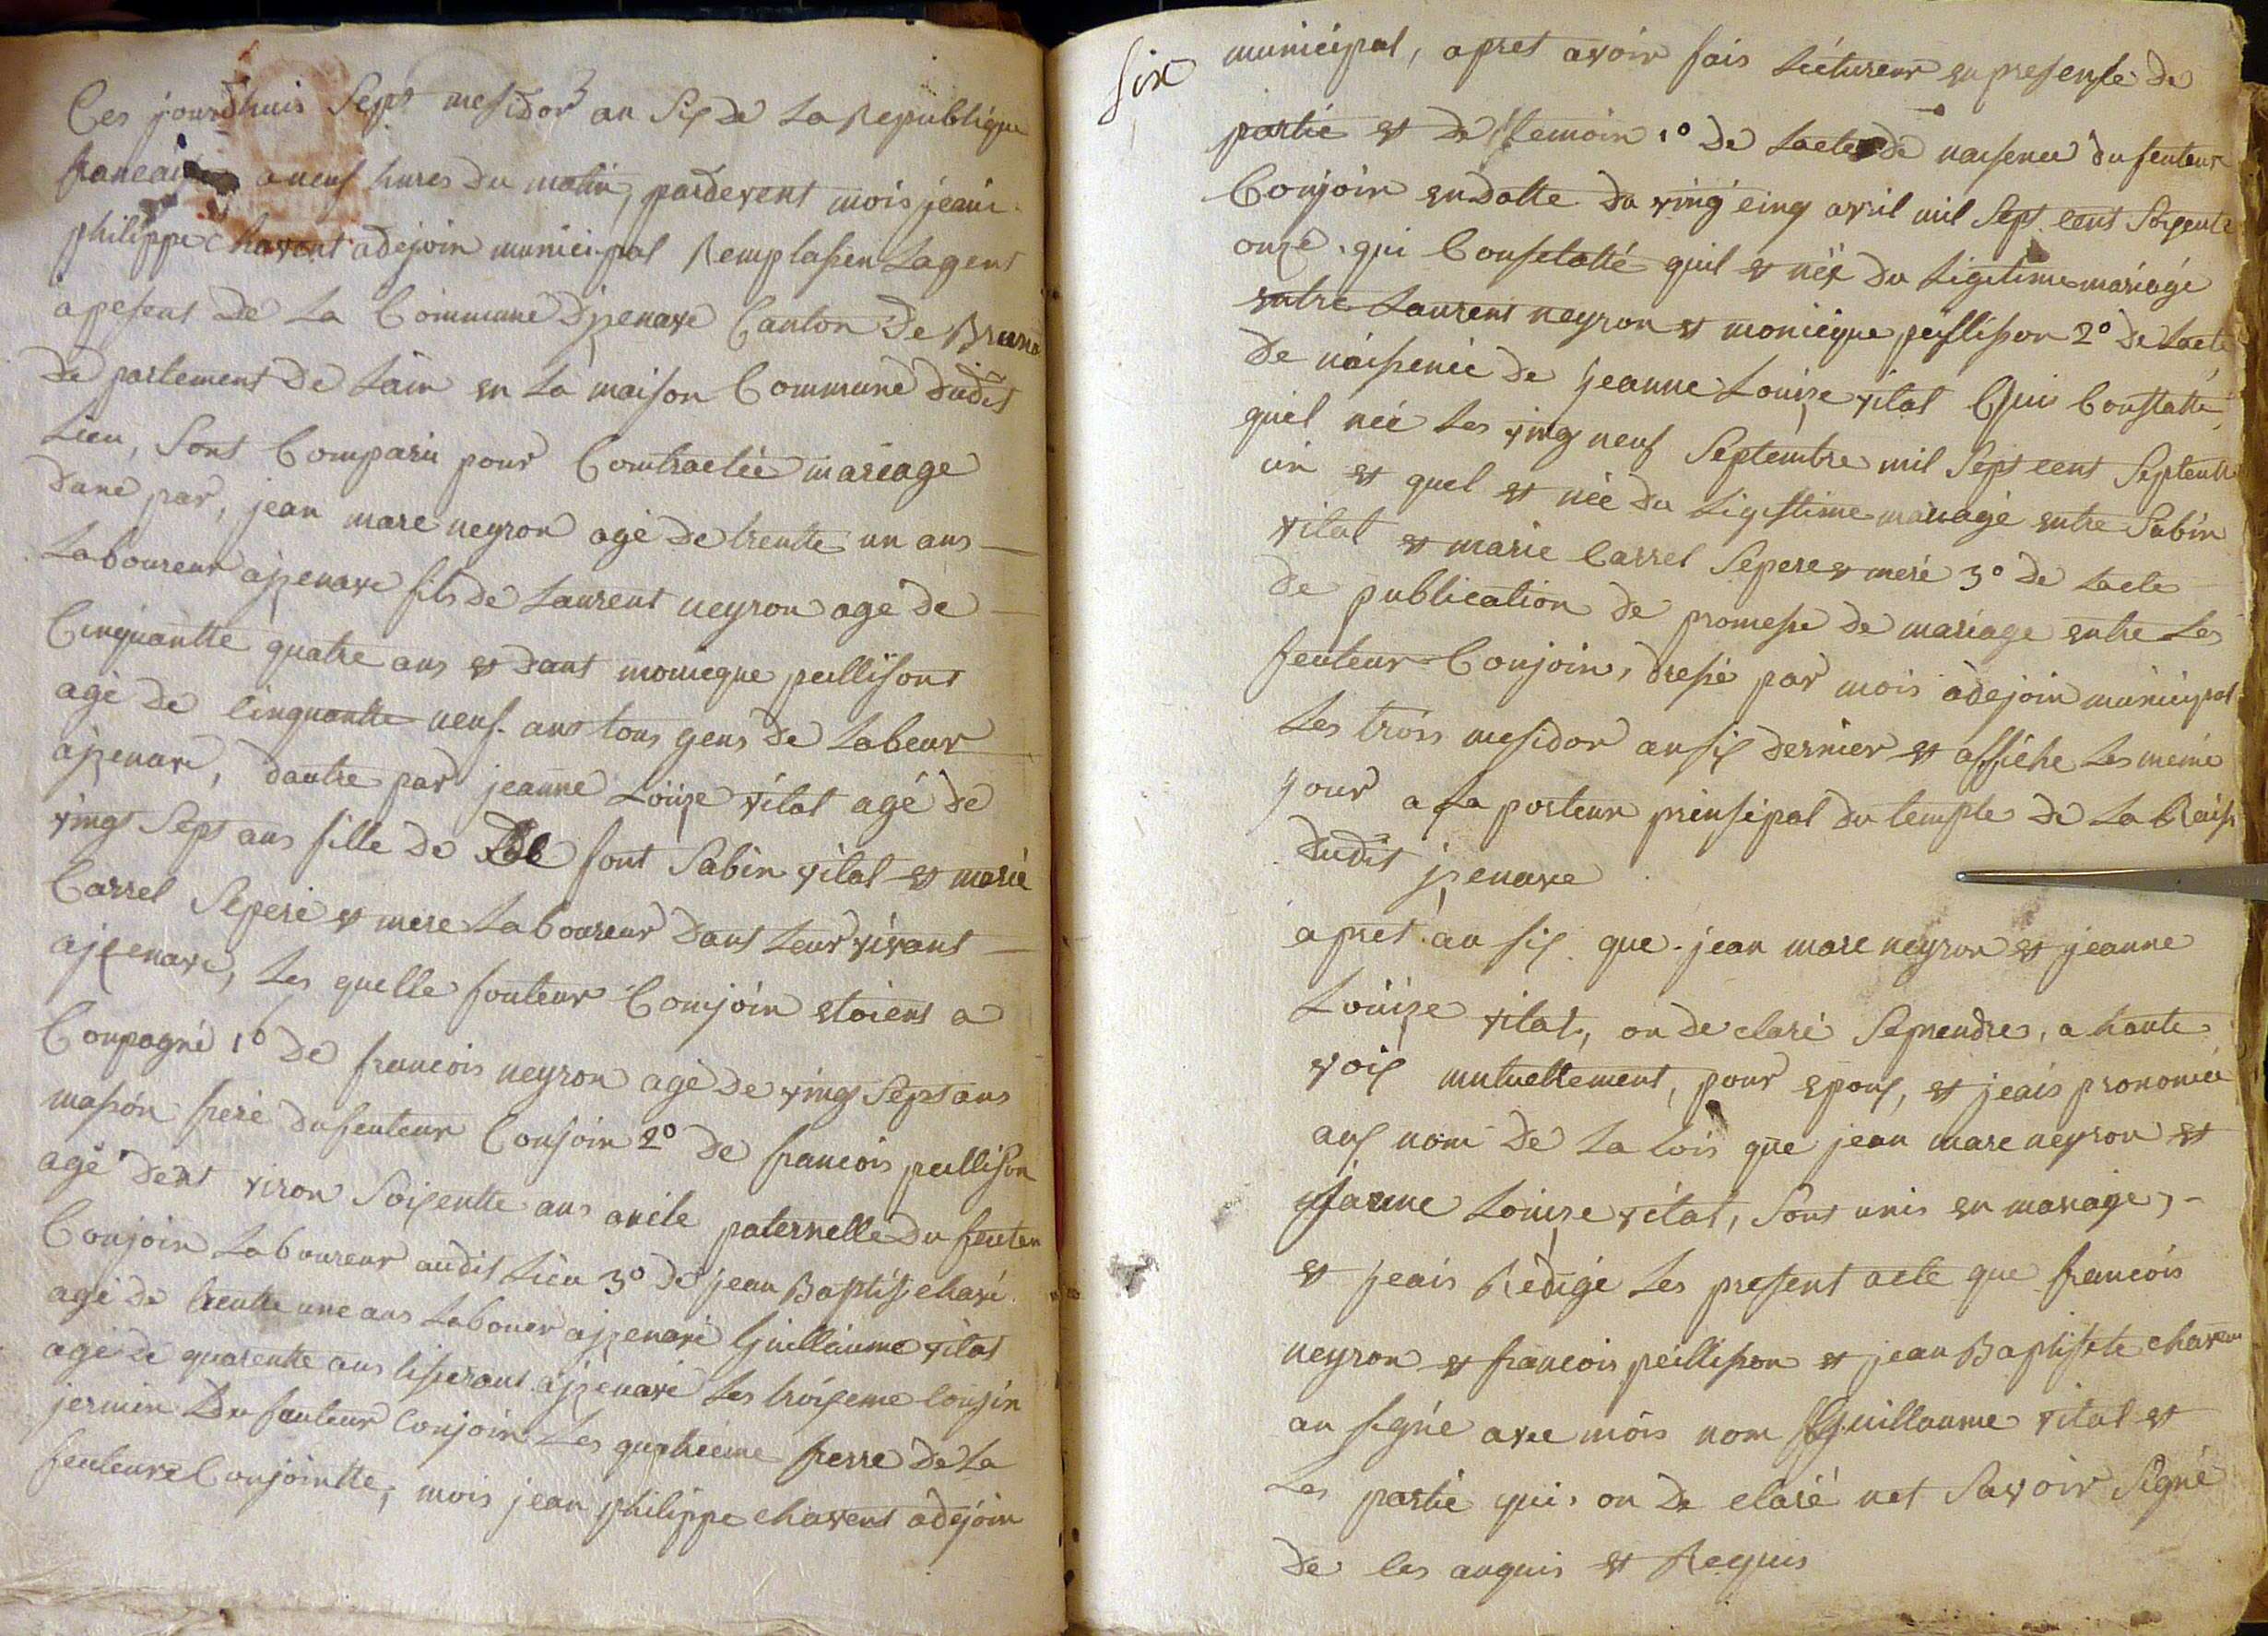 Ces jourdhuis Sept mesidor an Six de La Republique
francaise a neuf hures du matin, pardevent mois jean
philippe chavent adejoin municipal Remplasen Lagent
apesent de La Commune d'izenave Canton de Breno
de partement de Lain en La maison Commune dudit
Lieu, Sont Comparu pour Comtractée mariage
dune par, jean marc neyron agé de trente un ans
Laboureur aizenave fils de Laurent neyron agé de
Cinquantte quatre ans et dant monicque peillisont
agé de cinquantte neuf ans tous gens de Labeur
aizenave, dautre par jeanne Loüize vital agé de
vingt Sept ans fille de font Sabin vital et marie
Carrel Sepere et mere Laboureur dant Leur vivant
aizenave, Les quelle fouteur Comjoin etoient a
Conpagné 1º de francois neyron agé de ving Sept ans
mason frere dufeuteur Conjoin 2º de francois peillison
agé dent viron Soixentte ans oncle paternelle du feuteu
Conjoin Laboureur audit Lieu 3º de jean Baptist chavé
agé de trentte une ans Labouer aizenave Guillaume vital
agé de quarentte ans tiserant aizenave Les troiseme cousin
jermin Du fauteur Conjoin Les quatrieime frerre de La
feuteure Conjointte, mois jean philippe chavent adejoin
Six
municipal, apret avoir fais Léctureur enpresense de
partie et de temoin 1º de Lacte de naisence du feuteur
Conjoin endatte du ving cinq avril mil Sept cent Soixente
onze, qui Constatté quil et néx du Ligitime mariage
entre Laurent neyron et monicque peillison 2º de Lacte
de naissence de jeanne Louize vital Qui Constatte
quel née Les ving neuf Septembre mil Sept cent Septente
un et quel et née du Ligistime mariage entre Sabin
vital et marie Carrel Sepere et meré 3º de Lacte
de publication de promesse de mariage entre Les
feuteur Conjoin, dressé par mois adejoin municipal
Les trois mesidor an six dernier et affiche Les méme
jour a La porteur prinsipal du temple de La Raiso
dudit izenave
apret au six que jean marc neyron et jeanne
Loüize vital, on de claré Seprendre, a haute
voix mutuellement, pour epoux, et jeais prononcée
aux nom de La Lois que jean marc neyron et
jeanne Louize vital, Sont unis en mariage,
et jeais Redigé Les present acte que francois
neyron et francois peillisson et jean Baptiste chaven
an signé avec mois non Guillaume vital et
Les partie qui on de claré net Savoir Signé
de les anquis et Requis